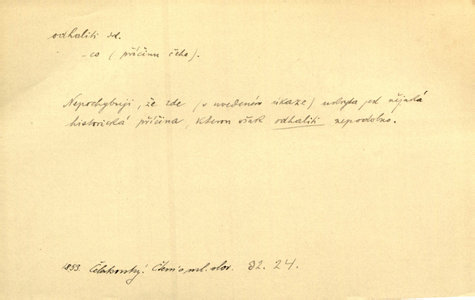 odhaliti vd.
- co (příčinu čeho).
Nepochybuji, že zde (v uvedeném úkaze) nebyla jest nějaká
historická příčina, kterou však odhaliti nepodobno.
1853. Čelakovský. Čtení o ml. slov. 32. 24.